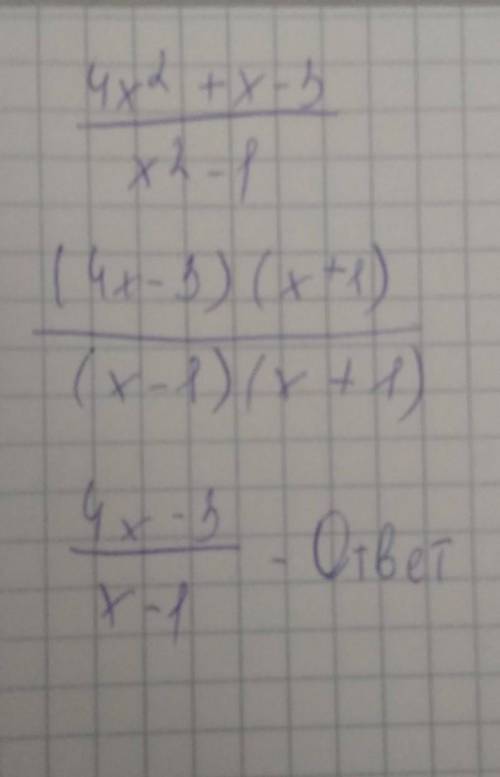 4x² + x - 3
x² - 1
(4x - 3)(x + 1)
(x - 1)(x + 1)
4x - 3
x - 1
- Ответ